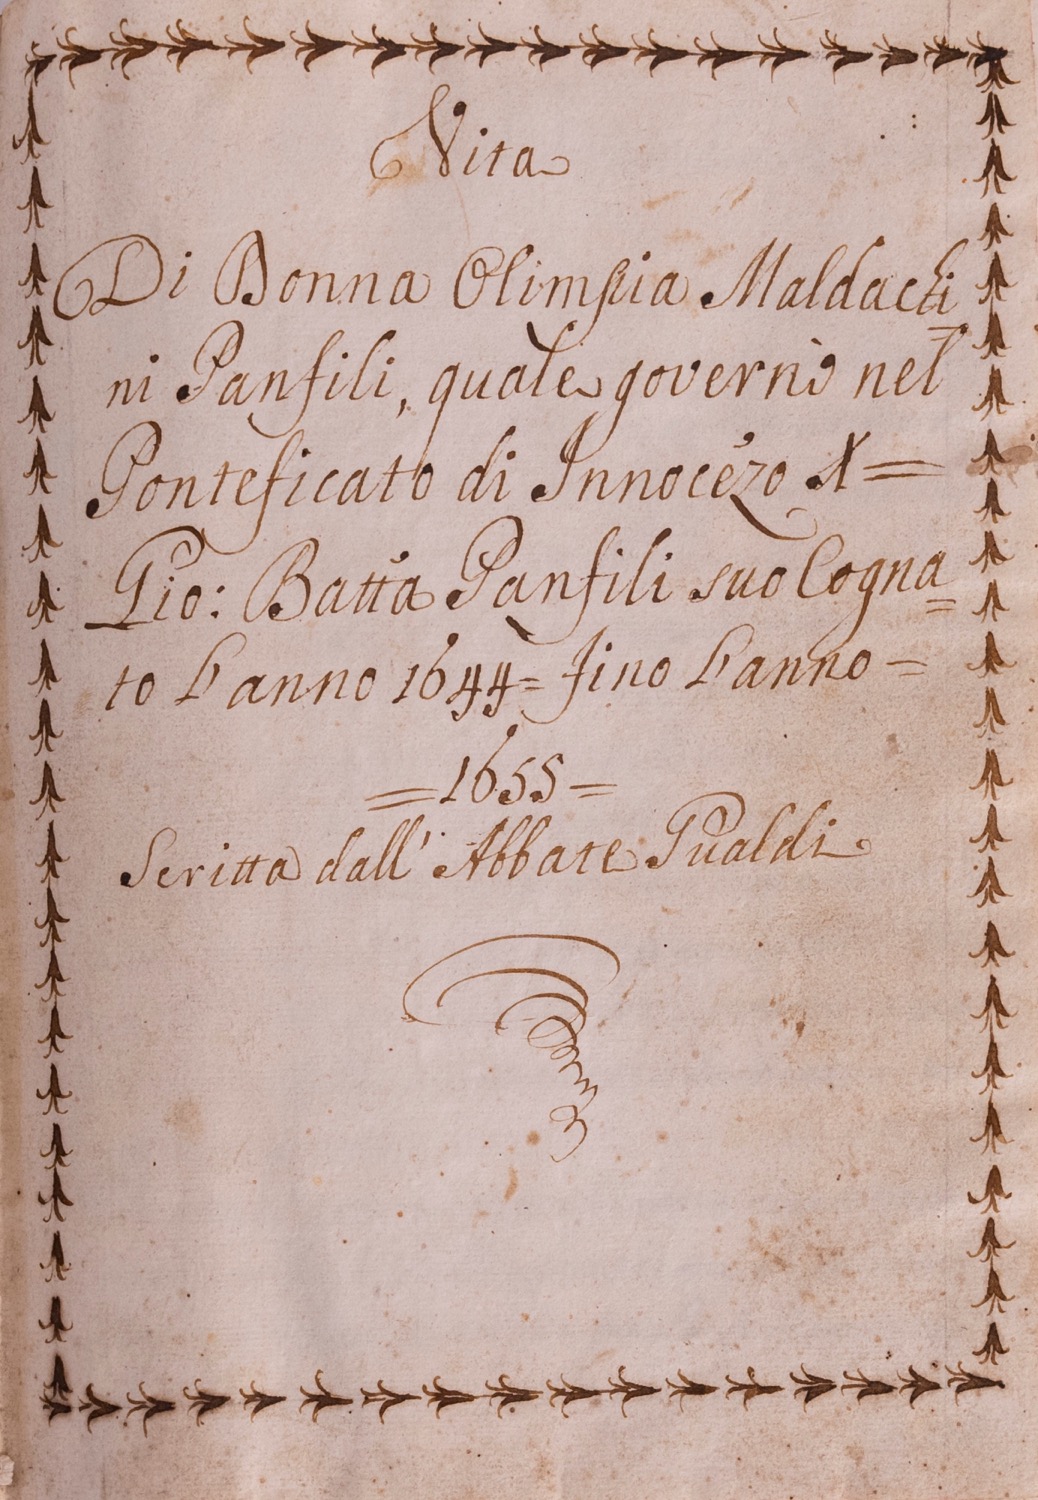 Vita
Di Donna Olimpia Maldachi
ni Panfili, quale governò nel
Ponteficato di Innocẽzo X =
Gio: Batta Panfili suo Cogna=
to l'anno 1644 = fino l'anno =
= 1655 =
Scritta dall' Abbate Gualdi